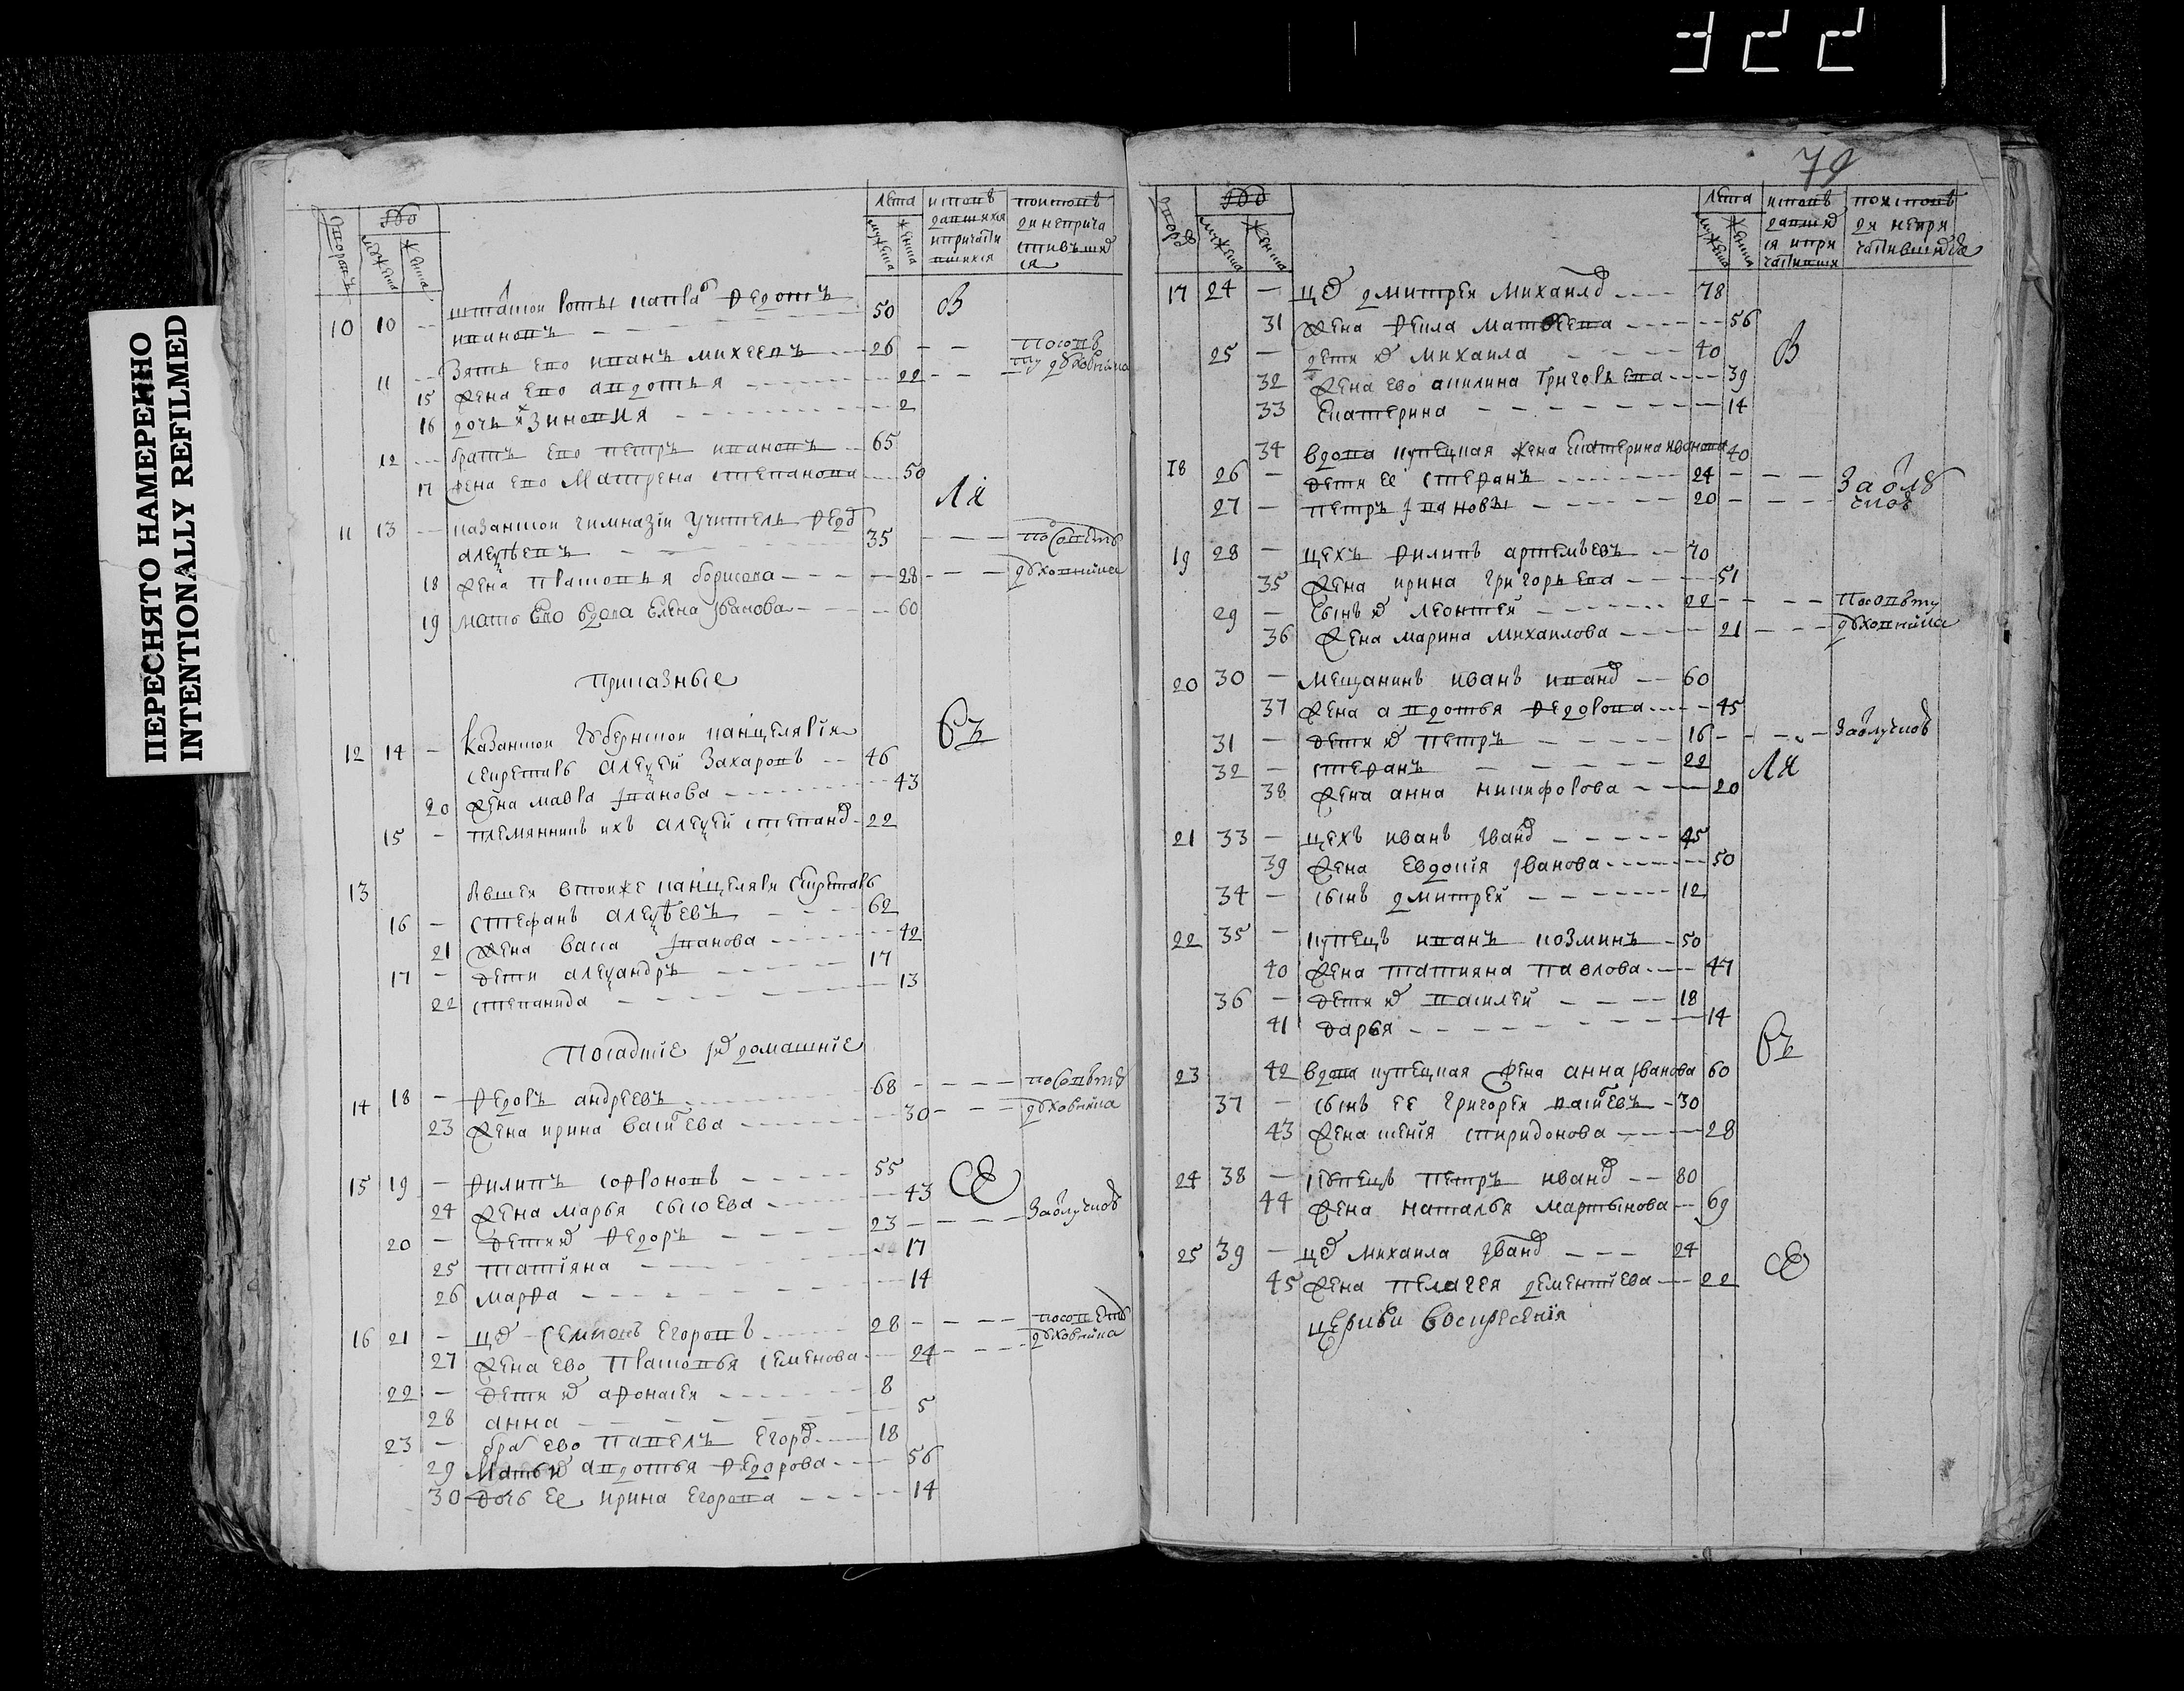 3221
ПЕРЕСНЯТО НАМЕРЕННО
INTENTIONALLY REFILMED
лета
10 10 -- штатной роты капра Федотъ
ивановъ 50
11 -- Зять Ево иванъ михеевъ 26 - - по совѣ
15 Жена Ево авдотья 22 - - ту дховника
16 дочь Зиновия 2
12 -- братъ Ево петръ ивановъ 65
17 Жена Ево Матрена степанова 50
11 13 -- казанской гимназіи учитель Федо
алеѯѣевъ 35 - - - по совету
18 Жена прасковья борисова 28 - - - духовника
19 мать Ево вдова Елена иванова 60
Приказные
12 14 - Казанской губернской канцеляріи
секретарь алеѯей Захаровъ 46
20 Жена мавра иванова 43
15 - племянникъ ихъ алеѯей степано 22
13 втойже канцеляри секретарь
16 - стефанъ алеѯѣевъ 62
21 Жена васса иванова 42
17 - дети алеѯандръ 17
22 степанида 13
Посадкие и домашніе
14 18 - Федоръ андреевъ 68 - - - - по совѣту
23 Жена ирина васиева 30 - - - духовника
15 19 - Филипъ софроновъ 55
24 Жена марья сысоева 43
20 - дети Федоръ 23 - - - - За отлучкою
25 татіяна 17
26 марфа 14
16 21 - це Семионъ Егоровъ 28 - - - - по совету
27 Жена ево прасковья семенова 24 - - - - духовника
22 - дети афонасея 8
28 анна 5
23 - бра ево павелъ Егоро 18
29 Мать авдотья Федорова 56
30 дочь Ее ирина Егорова 14
79
лета
17 24 - це дмитрея Михаило 78
31 Жена Фекла матвеева 56
25 - дети михаила 40
32 Жена ево акилина григорьева 39
33 Екатерина 14
34 вдова купецкая жена Екатерина иванова 40
18 26 - дети ее стефанъ 24 - - - - За отлу
27 - петръ ивановы 20 - - - - чкою
19 28 - цехъ Филипъ артемьевъ 70
35 Жена ирина григорьева 51
29 - сынъ леонтей 22 - - - - по совѣту
36 Жена марина михаилова 21 - - - духовника
20 30 - мещанинъ иванъ ивано 60
37 Жена авдотья Федорова 45
31 - дети петръ 16 - - - - За отлучкою
32 - стефанъ 22
38 Жена анна никифорова 20
21 33 - цехъ иванъ ивано 45
39 Жена евдокія иванова 50
34 - сынъ дмитрей 12
22 35 - купецъ иванъ козминъ 50
40 Жена татияна павлова 47
36 - дети василей 18
41 дарья 14
23 42 вдова купецкая Жена анна иванова 60
37 - сынъ ее григорея васиевъ 30
43 Жена ксенія спиридонова 28
24 38 - купецъ петръ ивано 80
44 Жена наталья мартынова 69
25 39 - це михаила ивано 24
45 Жена пелагея дементиева 22
церкви воскресения